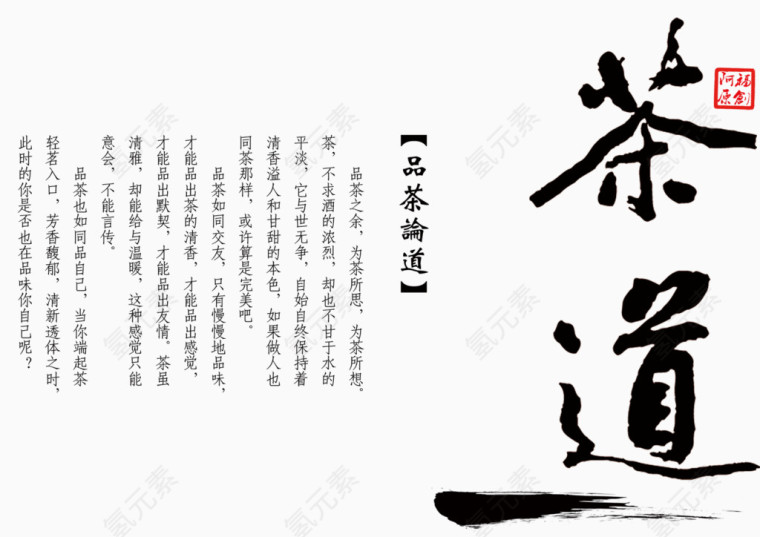 茶道
阿福原創
【品茶論道】
品茶之余，为茶所思，为茶所想。
茶，不求酒的浓烈，却也不甘于水的
平淡，它与世无争，自始自终保持着
清香溢人和甘甜的本色，如果做人也
同茶那样，或许算是完美吧。
品茶如同交友，只有慢慢地品味，
才能品出茶的清香，才能品出感觉，
才能品出默契，才能品出友情。茶虽
清雅，却能给与温暖，这种感觉只能
意会，不能言传。
品茶也如同品自己，当你端起茶
轻茗入口，芳香馥郁，清新透体之时，
此时的你是否也在品味你自己呢？
氢元素
氢元素
氢元素
氢元素
氢元素
氢元素
氢元素
氢元素
氢元素
氢元素
氢元素
氢元素